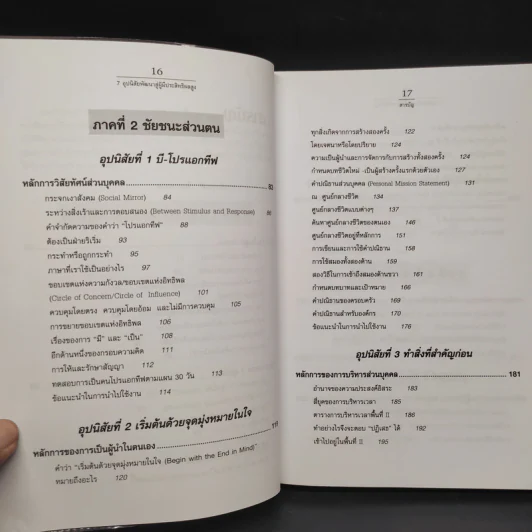 16
7 อุปนิสัยพัฒนาสู่ผู้มีประสิทธิผลสูง
ภาคที่ 2 ชัยชนะส่วนตน
อุปนิสัยที่ 1 บี-โปรแอกทีฟ
หลักการวิสัยทัศน์ส่วนบุคคล 83
กระจกเงาสังคม (Social Mirror) 84
ระหว่างสิ่งเร้าและการตอบสนอง (Between Stimulus and Response) 86
คำจำกัดความของคำว่า "โปรแอกทีฟ" 88
ต้องเป็นฝ่ายริเริ่ม 93
กระทำหรือถูกกระทำ 95
ภาษาที่เราใช้เป็นอย่างไร 97
ขอบเขตแห่งความกังวล/ขอบเขตแห่งอิทธิพล
(Circle of Concern/Circle of Influence) 101
ควบคุมโดยตรง ควบคุมโดยอ้อม และไม่มีการควบคุม 105
การขยายขอบเขตแห่งอิทธิพล 106
เรื่องของการ "มี" และ "เป็น" 108
อีกด้านหนึ่งของกรอบความคิด 111
การให้และรักษาสัญญา 112
ทดสอบการเป็นคนโปรแอกทีฟตามแผน 30 วัน 113
ข้อแนะนำในการนำไปใช้งาน 114
อุปนิสัยที่ 2 เริ่มต้นด้วยจุดมุ่งหมายในใจ
หลักการของการเป็นผู้นำในตนเอง 119
คำว่า "เริ่มต้นด้วยจุดมุ่งหมายในใจ (Begin with the End in Mind)"
หมายถึงอะไร 120
17
สารบัญ
ทุกสิ่งเกิดจากการสร้างสองครั้ง 122
โดยเจตนาหรือโดยปริยาย 124
ความเป็นผู้นำและการจัดการกับการสร้างทั้งสองครั้ง 124
กำหนดบทชีวิตใหม่ -เป็นผู้สร้างครั้งแรกด้วยตัวเอง 127
คำปณิธานส่วนบุคคล (Personal Mission Statement) 131
ณ ศูนย์กลางชีวิต 134
ศูนย์กลางชีวิตแบบต่างๆ 137
ค้นหาศูนย์กลางชีวิตของตนเอง 146
ศูนย์กลางชีวิตอยู่ที่หลักการ 151
การเขียนและการใช้คำปณิธาน 158
การใช้สมองทั้งสองด้าน 159
สองวิธีในการเข้าถึงสมองด้านขวา 161
กำหนดบทบาทและเป้าหมาย 166
คำปณิธานของครอบครัว 169
คำปณิธานสำหรับองค์กร 170
ข้อแนะนำในการนำไปใช้งาน 176
อุปนิสัยที่ 3 ทำสิ่งที่สำคัญก่อน
หลักการของการบริหารส่วนบุคคล 181
อำนาจของความประสงค์อิสระ 183
สี่ยุคของการบริหารเวลา 185
ตารางการบริหารเวลาพื้นที่ II 186
ทำอย่างไรจึงจะตอบ "ปฏิเสธ" ได้ 192
เข้าไปอยู่ในพื้นที่ II 195